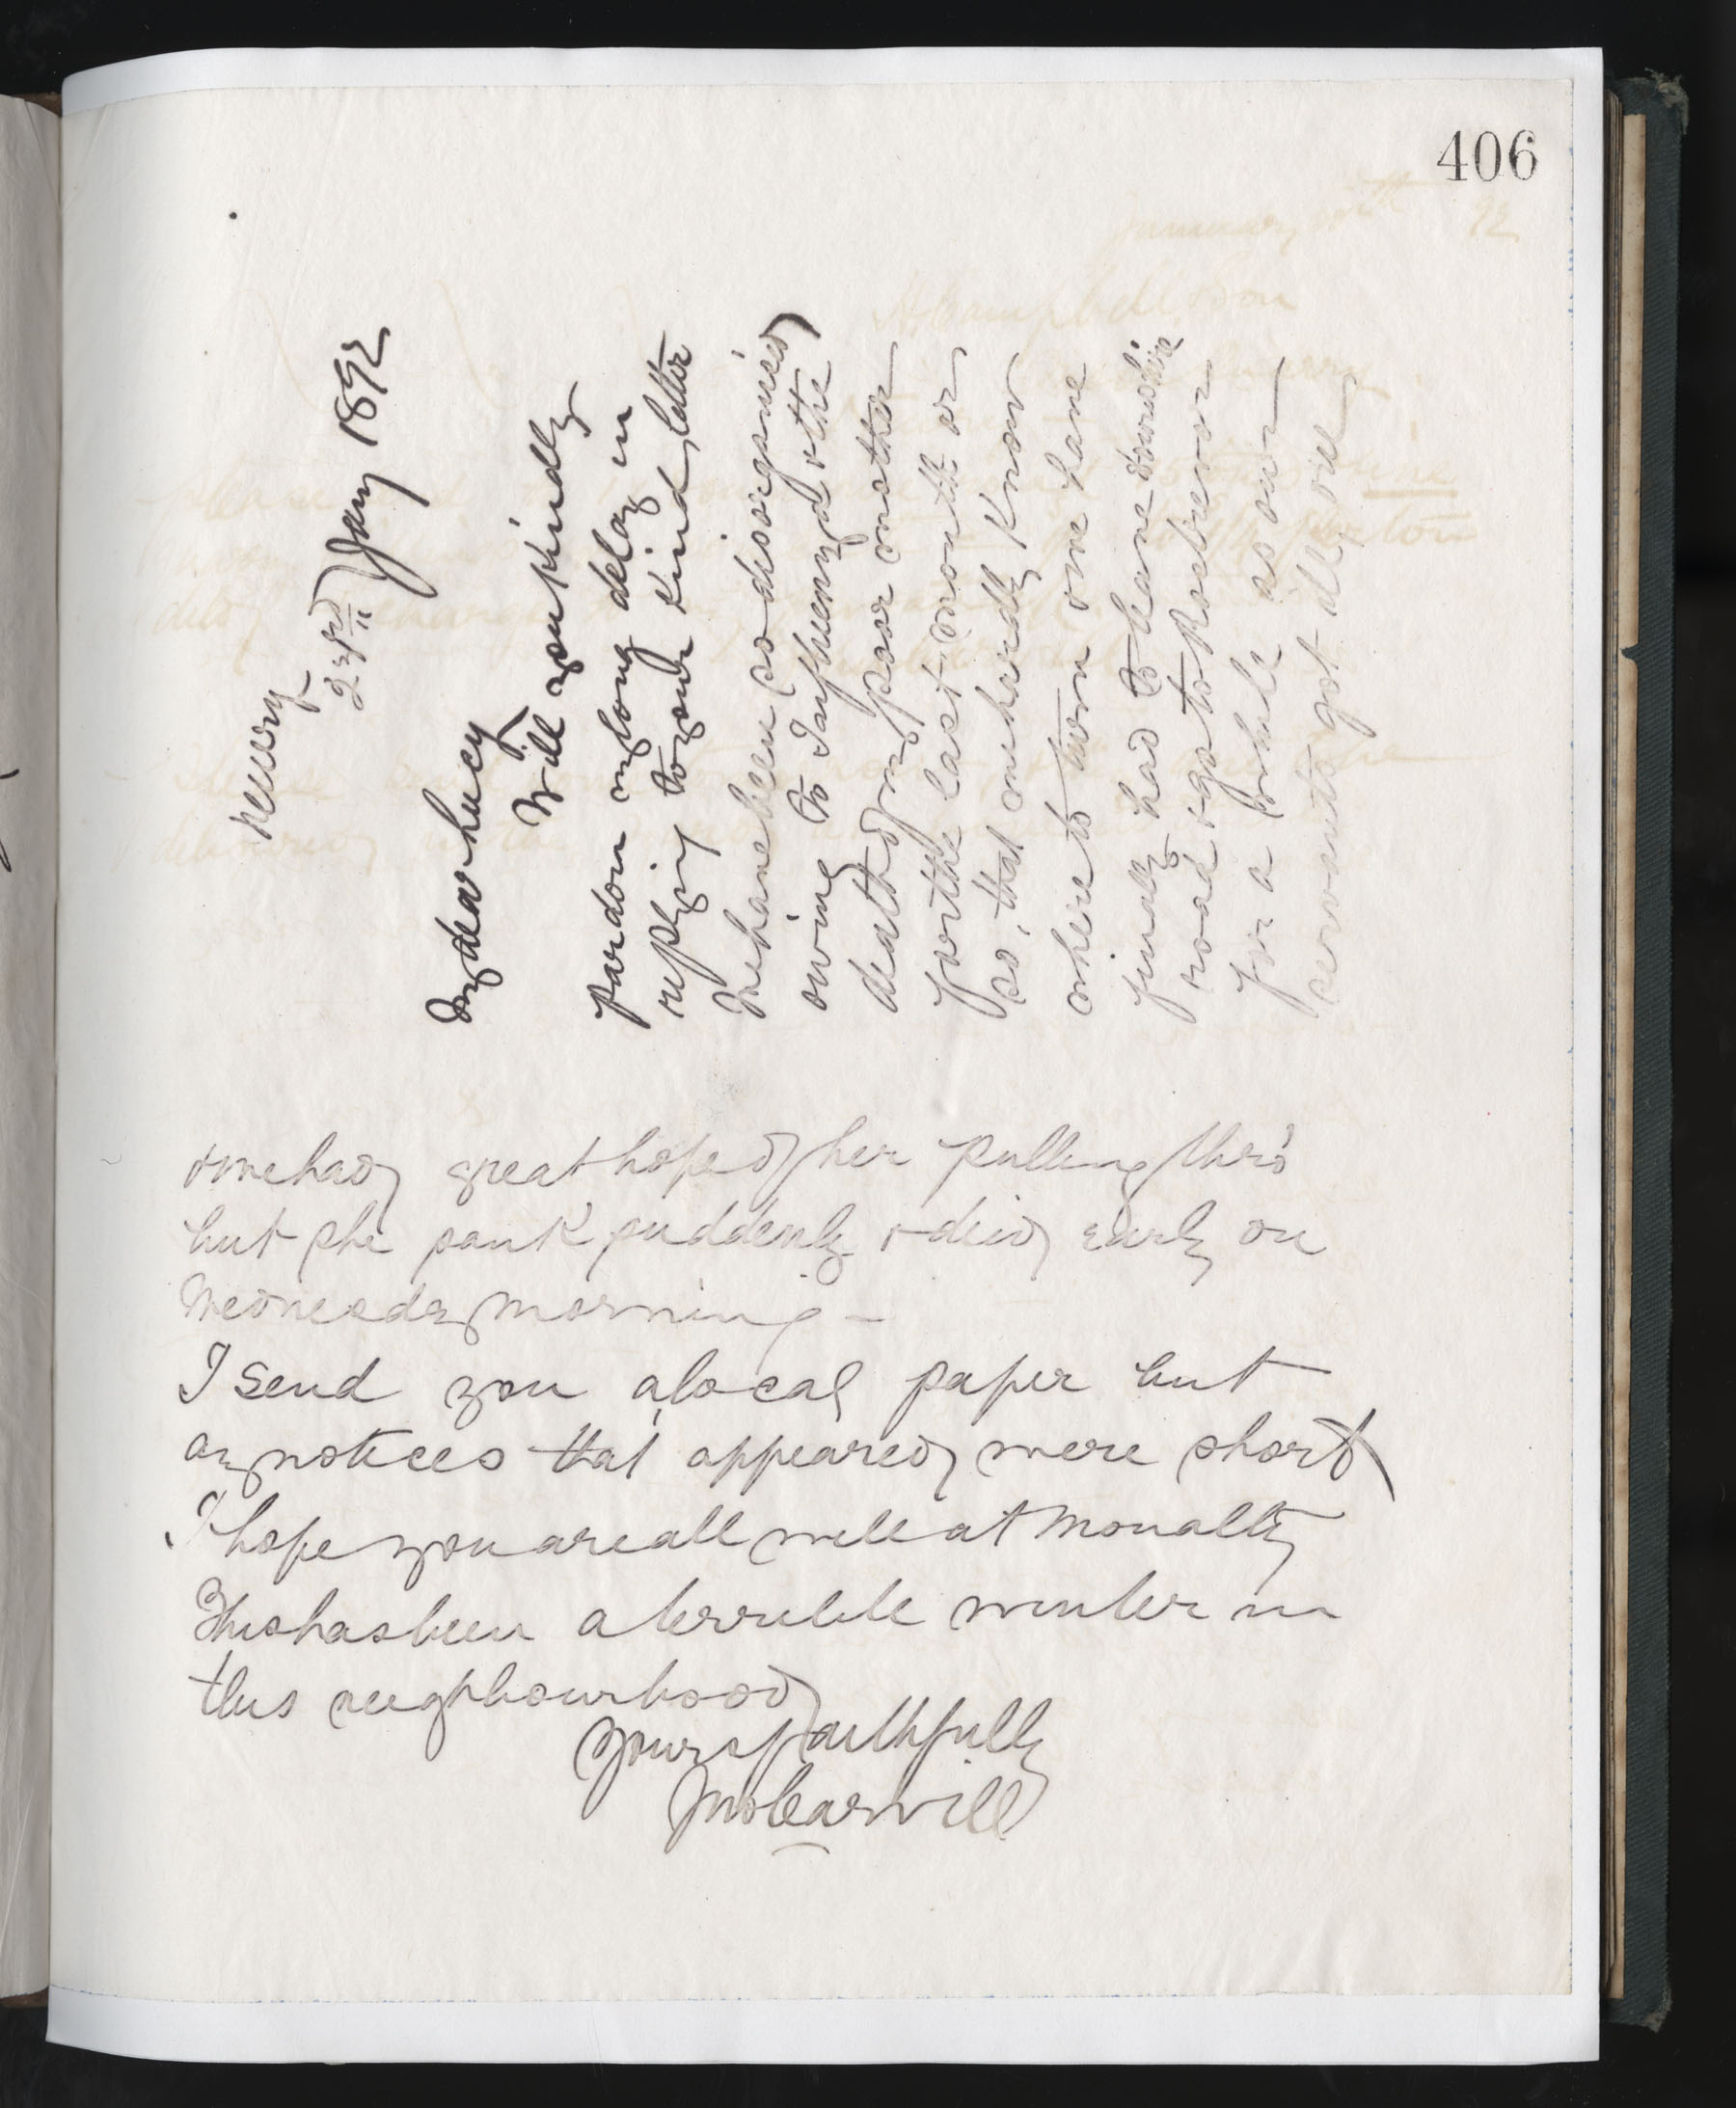 406
Newry
23rd Jany 1892
My dear Lucy
Will you kindly
pardon my long delay in
replying to your kind letter
We have been so disorganised
owing to Influenza & the
death of my poor mother
for the last month or
so, that we hardly know
where to turn one have
finally had to leave downshire
road & go to Rostrevor
for a while as our
servants got ill, one
& we had great hope of her pulling thro'
but she sank suddenly & died early on
Wednesday morning -
I send you a local paper but
any notices that appeared were short
I hope you are all well at Monalty
This has been a terrible winter in
this neighbourhood
Yours faithfully
Jno Carvill